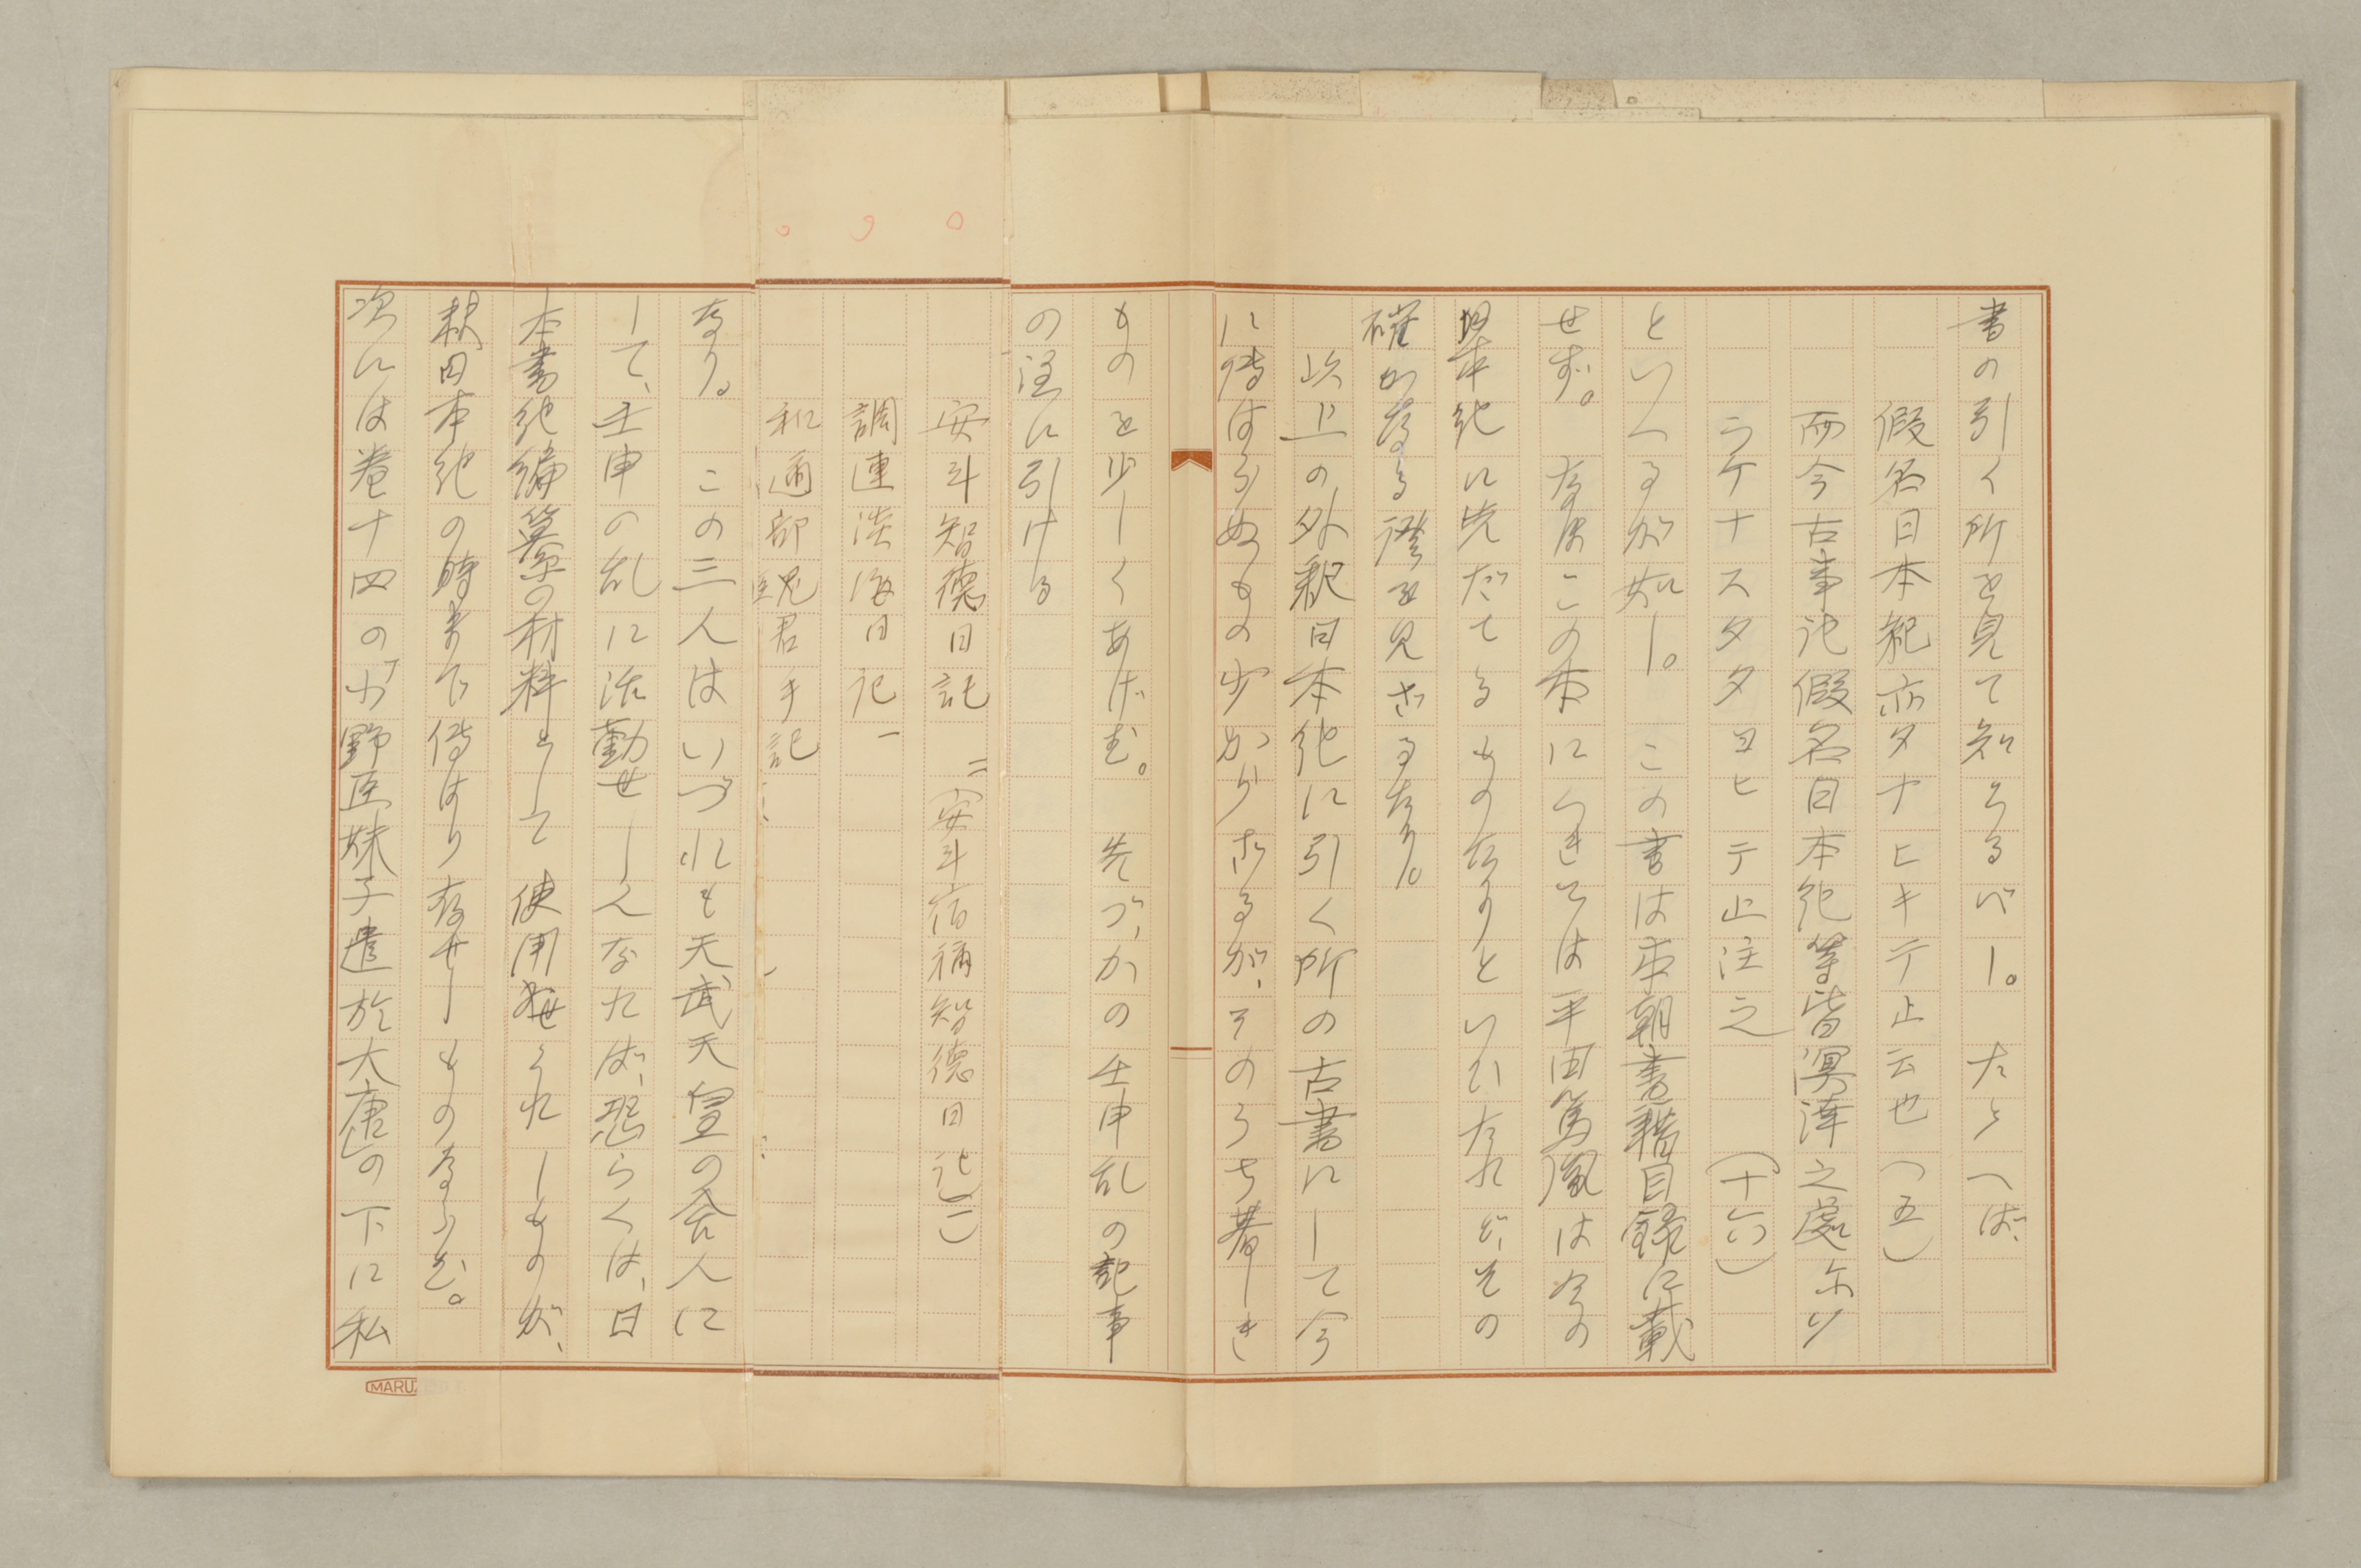 書の引く所を見て知らるべし。たとへば、
假名日本紀亦タナヒキテ止云也（五）
而今古事記假名日本紀等皆溟涬之處ホリ
ラケナスタタヨヒテ止注之　（十六）
といへるが如し。この書は本朝書籍目録に載
せず。なほこの本につきては平田篤胤は今の
日本紀に先だてるものなりといひたれど、その
確かなる證を見ざるなり。
以上の外釈日本紀に引く所の古書にして今
に傳はらぬもの少からざるが、そのうち著しき
ものを少しくあげむ。先づ、かの壬申乱の記事
の注に引ける
安斗智徳日記　（安斗宿禰智徳日記）
調連淡海日記
和邇部臣君手記
なり。この三人はいづれも天武天皇の舎人に
して、壬申の乱に活動せし人なれば、恐らくは、日
本書紀編纂の材料として使用せられしものが、
釈日本紀の時まで傳はり存せしものならむ。
次には巻十四の「小野臣妹子遣於大唐」の下に私
MARUZ